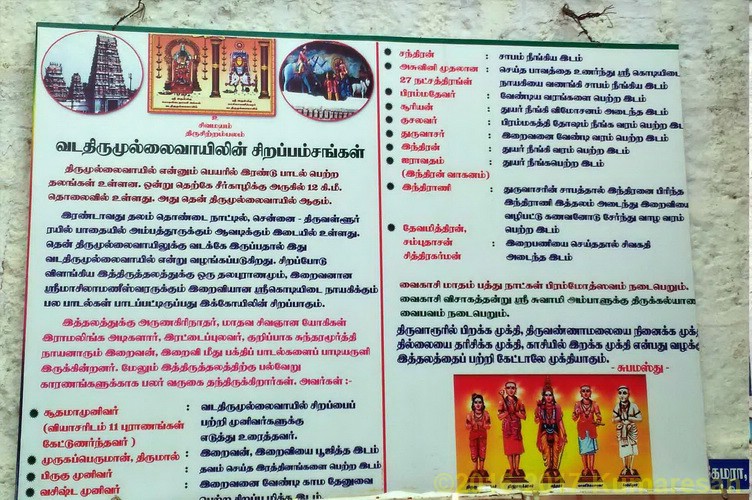 உ
சிவமயம்
திருச்சிற்றம்பலம்
வடதிருமுல்லைவாயிலின் சிறப்பம்சங்கள்
திருமுல்லைவாயில் என்னும் பெயரில் இரண்டு பாடல் பெற்ற
தலங்கள் உள்ளன. ஒன்று தெற்கே சீர்காழிக்கு அருகில் 12 கி.மீ.
தொலைவில் உள்ளது. அது தென் திருமுல்லைவாயில் ஆகும்.
இரண்டாவது தலம் தொண்டை நாட்டில், சென்னை - திருவள்ளூர்
ரயில் பாதையில் அம்பத்தூருக்கும் ஆவடிக்கும் இடையில் உள்ளது.
தென் திருமுல்லைவாயிலுக்கு வடக்கே இருப்பதால் இது
வடதிருமுல்லைவாயில் என்று வழங்கப்படுகிறது. சிறப்போடு
விளங்கிய இத்திருத்தலத்துக்கு ஒரு தலபுராணமும், இறைவனான
ஸ்ரீமாசிலாமணீஸ்வரருக்கும் இறைவியான ஸ்ரீகொடியிடை நாயகிக்கும்
பல பாடல்கள் பாடப்பட்டிருப்பது இக்கோயிலின் சிறப்பாகும்.
இத்தலத்துக்கு அருணகிரிநாதர், மாதவ சிவஞான யோகிகள்
இராமலிங்க அடிகளார், இரட்டைப்புலவர், குறிப்பாக சுந்தரமூர்த்தி
நாயனாரும் இறைவன், இறைவி மீது பக்திப் பாடல்களைப் பாடியருளி
இருக்கின்றனர். மேலும் இத்திருத்தலத்திற்கு பல்வேறு
காரணங்களுக்காக பலர் வருகை தந்திருக்கிறார்கள். அவர்கள் :-
சூதமாமுனிவர் : வடதிருமுல்லைவாயில் சிறப்பைப்
(வியாசரிடம் 11 புராணங்கள் பற்றி முனிவர்களுக்கு
கேட்டுணர்ந்தவர் ) எடுத்து உரைத்தவர்.
முருகப்பெருமான், திருமால் : இறைவன், இறைவியை பூஜித்த இடம்
பிருகு முனிவர் : தவம் செய்த இரத்தினங்களை பெற்ற இடம்
வசிஷ்ட முனிவர் : இறைவனை வேண்டி காம தேனுவை
பெற்ற சிறப்புமிக்க இடம்.
சந்திரன் : சாபம் நீங்கிய இடம்
அசுவினி முதலான : செய்த பாவத்தை உணர்ந்து ஸ்ரீ கொடியிடை
27 நட்சத்திரங்கள் நாயகியை வணங்கி சாபம் நீங்கிய இடம்
பிரம்மதேவர் : வேண்டிய வரங்களை பெற்ற இடம்
சூரியன் : துயர் நீங்கி விமோசனம் அடைந்த இடம்
குசலவர் : பிரம்மகத்தி தோஷம் நீங்க வரம் பெற்ற இட
துருவாசர் : இறைவனை வேண்டி வரம் பெற்ற இடம்
இந்திரன் : துயர் நீங்கி வரம் பெற்ற இடம்
ஐராவதம் : துயர் நீங்கபெற்ற இடம்
(இந்திரன் வாகனம்)
இந்திராணி : துருவாசரின் சாபத்தால் இந்திரனை பிரிந்த
இந்திராணி இத்தலம் அடைந்து இறைவியை
வழிபட்டு கணவனோடு சேர்ந்து வாழ வரம்
பெற்ற இடம்
தேவமித்திரன், : இறைபணியை செய்ததால் சிவகதி
சம்புதாசன் அடைந்த இடம்
சித்திரகர்மன்
வைகாசி மாதம் பத்து நாட்கள் பிரம்மோத்ஸவம் நடைபெறும்.
வைகாசி விசாகத்தன்று ஸ்ரீ சுவாமி அம்பாளுக்கு திருக்கல்யாண
வைபவம் நடைபெறும்.
திருவாரூரில் பிறக்க முக்தி, திருவண்ணாமலையை நினைக்க முக்
தில்லையை தரிசிக்க முக்தி, காசியில் இறக்க முக்தி என்பது வழக்
இத்தலத்தைப் பற்றி கேட்டாலே முக்தியாகும்.
- சுபமஸ்து -